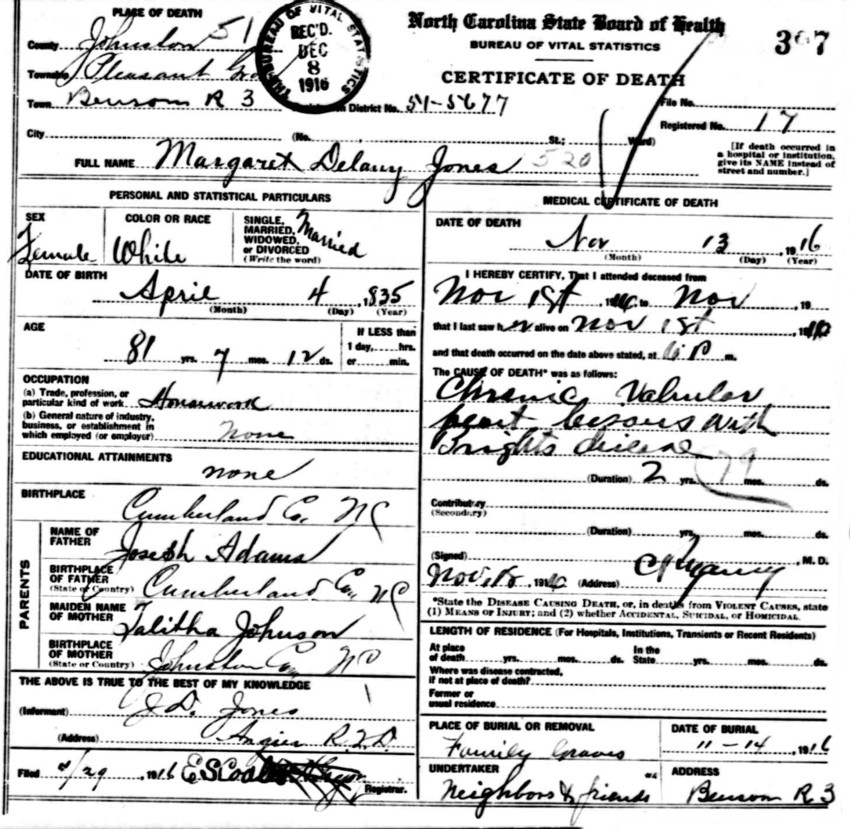 PLACE OF DEATH
North Carolina State Board of Health
BUREAU OF VITAL STATISTICS
CERTIFICATE OF DEATH
307
THE BUREAU OF VITAL STATISTICS
REC'D.
DEC
8
1916
County Johnston 51
Township Pleasant
Town Benson R 3
District No. 51-5677
File No.
Registered No. 17
City (No. St.; Ward)
[If death occurred in a hospital or institution, give its NAME instead of street and number.]
FULL NAME Margaret Delany Jones 520
PERSONAL AND STATISTICAL PARTICULARS
SEX
Female
COLOR OR RACE
White
SINGLE, MARRIED, WIDOWED, or DIVORCED
(Write the word)
Married
DATE OF BIRTH
April 4, 1835
(Month) (Day) (Year)
AGE
81 yrs. 7 mos. 12 ds.
If LESS than
1 day, hrs.
or min.
OCCUPATION
(a) Trade, profession, or
particular kind of work Housework
(b) General nature of industry,
business, or establishment in
which employed (or employer) None
EDUCATIONAL ATTAINMENTS
none
BIRTHPLACE
Cumberland Co. NC
PARENTS
NAME OF FATHER
Joseph Adams
BIRTHPLACE OF FATHER
(State or Country)
Cumberland Co. NC
MAIDEN NAME OF MOTHER
Talitha Johnson
BIRTHPLACE OF MOTHER
(State or Country)
Johnston Co. NC
THE ABOVE IS TRUE TO THE BEST OF MY KNOWLEDGE
(Informant) J.D. Jones
(Address) Angier R.F.D.
Filed 11/29, 1916 E S Coats
Registrar.
MEDICAL CERTIFICATE OF DEATH
DATE OF DEATH
Nov 13, 1916
(Month) (Day) (Year)
I HEREBY CERTIFY, That I attended deceased from
Nov 1st, 1916, to Nov, 19
that I last saw her alive on Nov 1st, 1916
and that death occurred on the date above stated, at P m.
The CAUSE OF DEATH* was as follows:
Chronic Valvular
heart lesions with
Brights disease
(Duration) 2 yrs. 79 mos. ds.
Contributory
(Secondary)
(Duration) yrs. mos. ds.
(Signed) M.D.
Nov, 1916 (Address)
*State the DISEASE CAUSING DEATH, or, in deaths from VIOLENT CAUSES, state
(1) MEANS OF INJURY; and (2) whether ACCIDENTAL, SUICIDAL, OR HOMICIDAL.
LENGTH OF RESIDENCE (For Hospitals, Institutions, Transients or Recent Residents)
At place
of death yrs. mos. ds.
In the
State yrs. mos. ds.
Where was disease contracted,
if not at place of death?
Former or
usual residence
PLACE OF BURIAL OR REMOVAL
Family Graves
DATE OF BURIAL
11-14, 1916
UNDERTAKER
Neighbors & friends
ADDRESS
Benson R 3